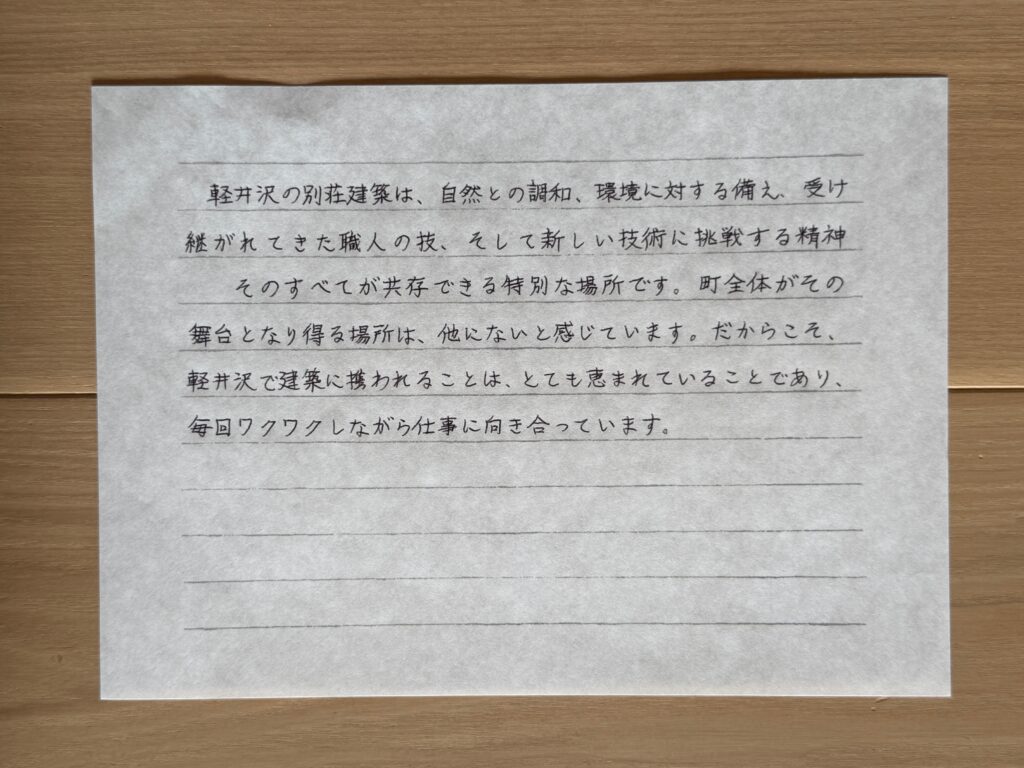 軽井沢の別荘建築は、自然との調和、環境に対する備え、受け
継がれてきた職人の技、そして新しい技術に挑戦する精神
そのすべてが共存できる特別な場所です。町全体がその
舞台となり得る場所は、他にないと感じています。だからこそ、
軽井沢で建築に携われることは、とても恵まれていることであり、
毎回ワクワクしながら仕事に向き合っています。